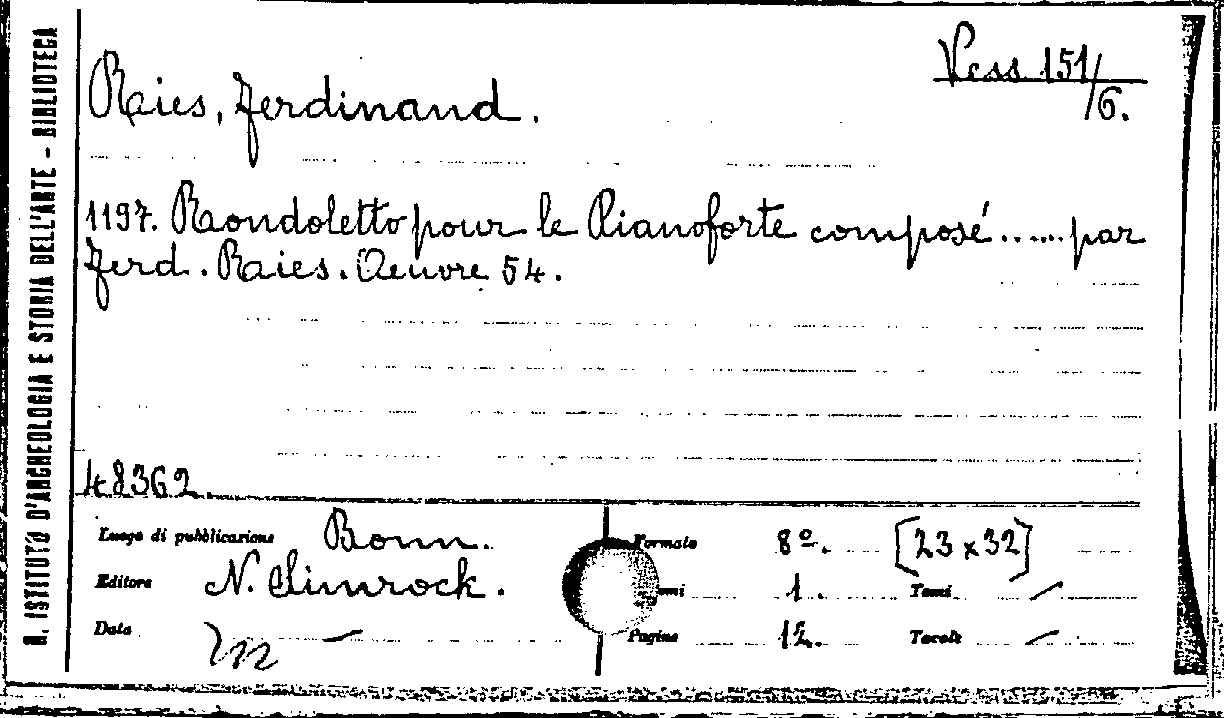 Vess 151/6.
Raies, Ferdinand.
1197. Rondoletto pour le Pianoforte composé...... par
Ferd. Raies. Oeuvre 54.
48362
Luogo di pubblicazione Bonn.
Editore N. Simrock.
Data —
Formato 8º. [23 x 32]
1. Tomi /
Pagine 12. Tavole /
R. ISTITUTO D'ARCHEOLOGIA E STORIA DELL'ARTE - BIBLIOTECA